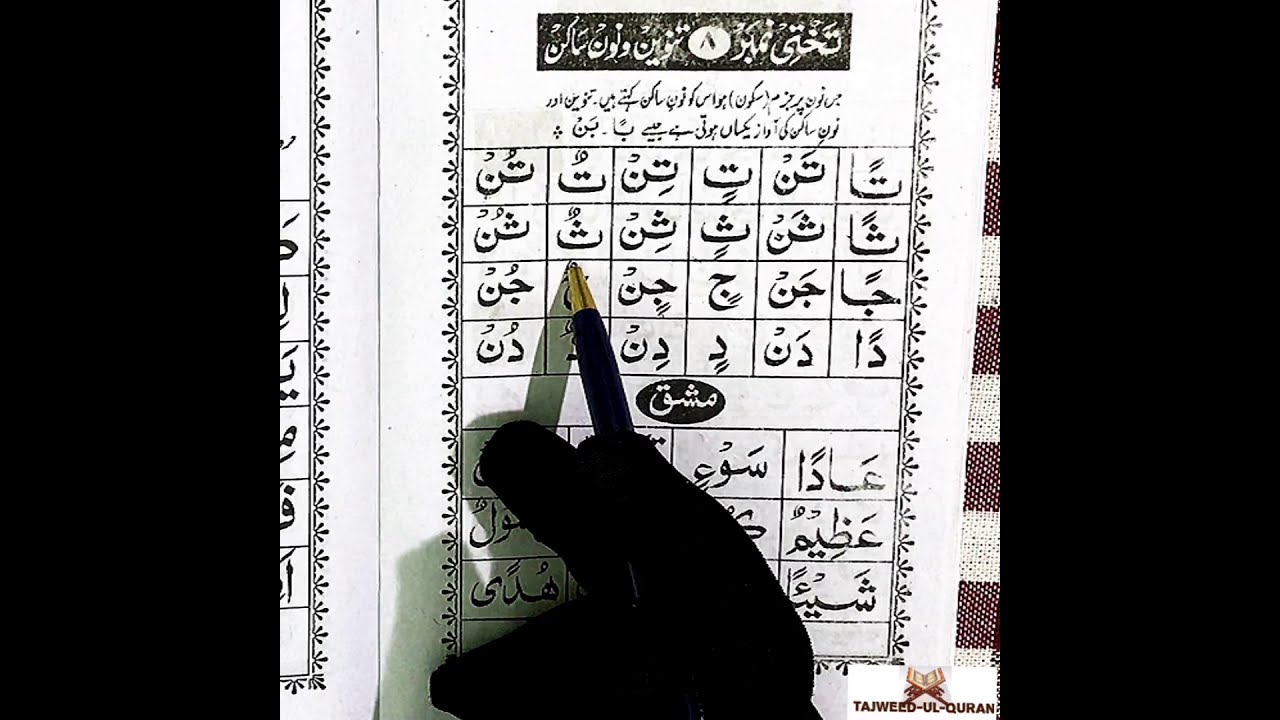 تختی نمبر ۸ تنوین و نون ساکن
جس نون پر جزم (سکون) ہو اس کو نون ساکن کہتے ہیں۔ تنوین اور
نون ساکن کی آواز یکساں ہوتی ہے جیسے بًا۔ بَنْ
تًا تَنْ تٍ تِنْ تٌ تُنْ
ثًا ثَنْ ثٍ ثِنْ ثٌ ثُنْ
جًا جَنْ جٍ جِنْ جُنْ
دًا دَنْ دٍ دِنْ دٌ دُنْ
مشق
عَادًا سَوْءٍ
عَظِيْمٌ
شَيْئًا هُدًى
TAJWEED-UL-QURAN